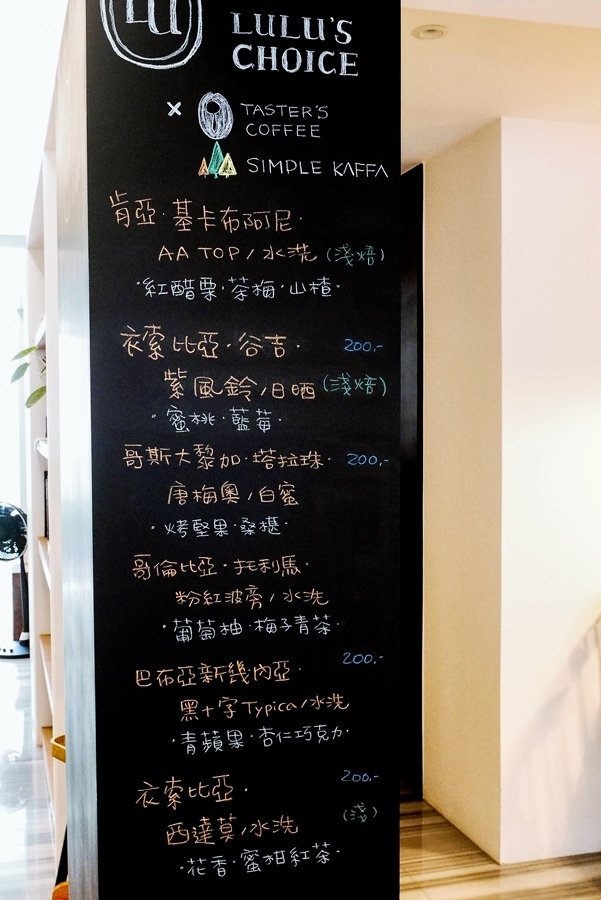 LU
LULU'S
CHOICE
× TASTER'S
COFFEE
SIMPLE KAFFA
肯亞·基卡布阿尼·
AA TOP/水洗(淺焙)
·紅醋栗·茶梅·山楂·
衣索比亞·谷吉· 200.-
紫風鈴/日晒(淺焙)
·蜜桃·藍莓·
哥斯大黎加·塔拉珠· 200.-
唐梅奧/白蜜
·烤堅果·桑椹·
哥倫比亞·托利馬·
粉紅波旁/水洗
·葡萄柚·梅子青茶·
200.-
巴布亞新幾內亞·
黑十字Typica/水洗
·青蘋果·杏仁巧克力·
200.-
衣索比亞·
(淺)
西達莫/水洗
·花香·蜜柑紅茶·